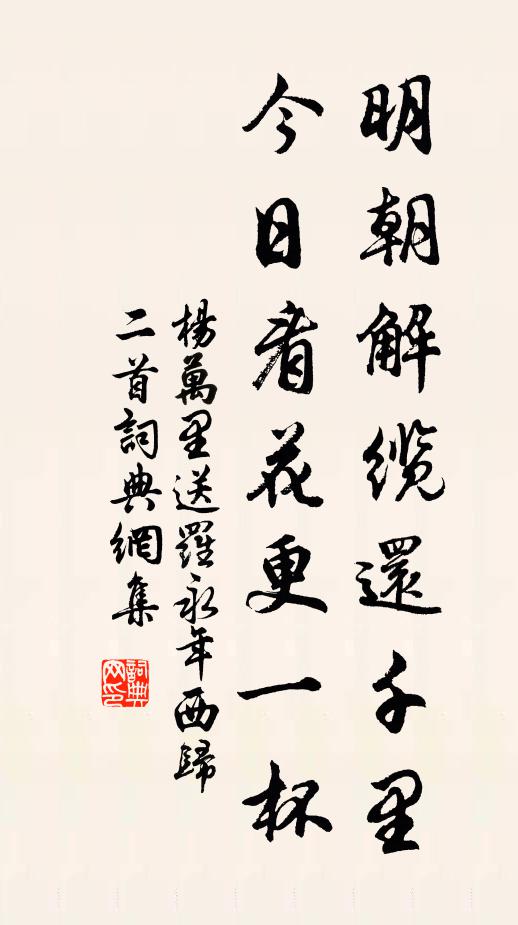 明朝解纜還千里
今日看花更一杯
楊萬里送羅永年西歸
二首詞典網集
詞典網印